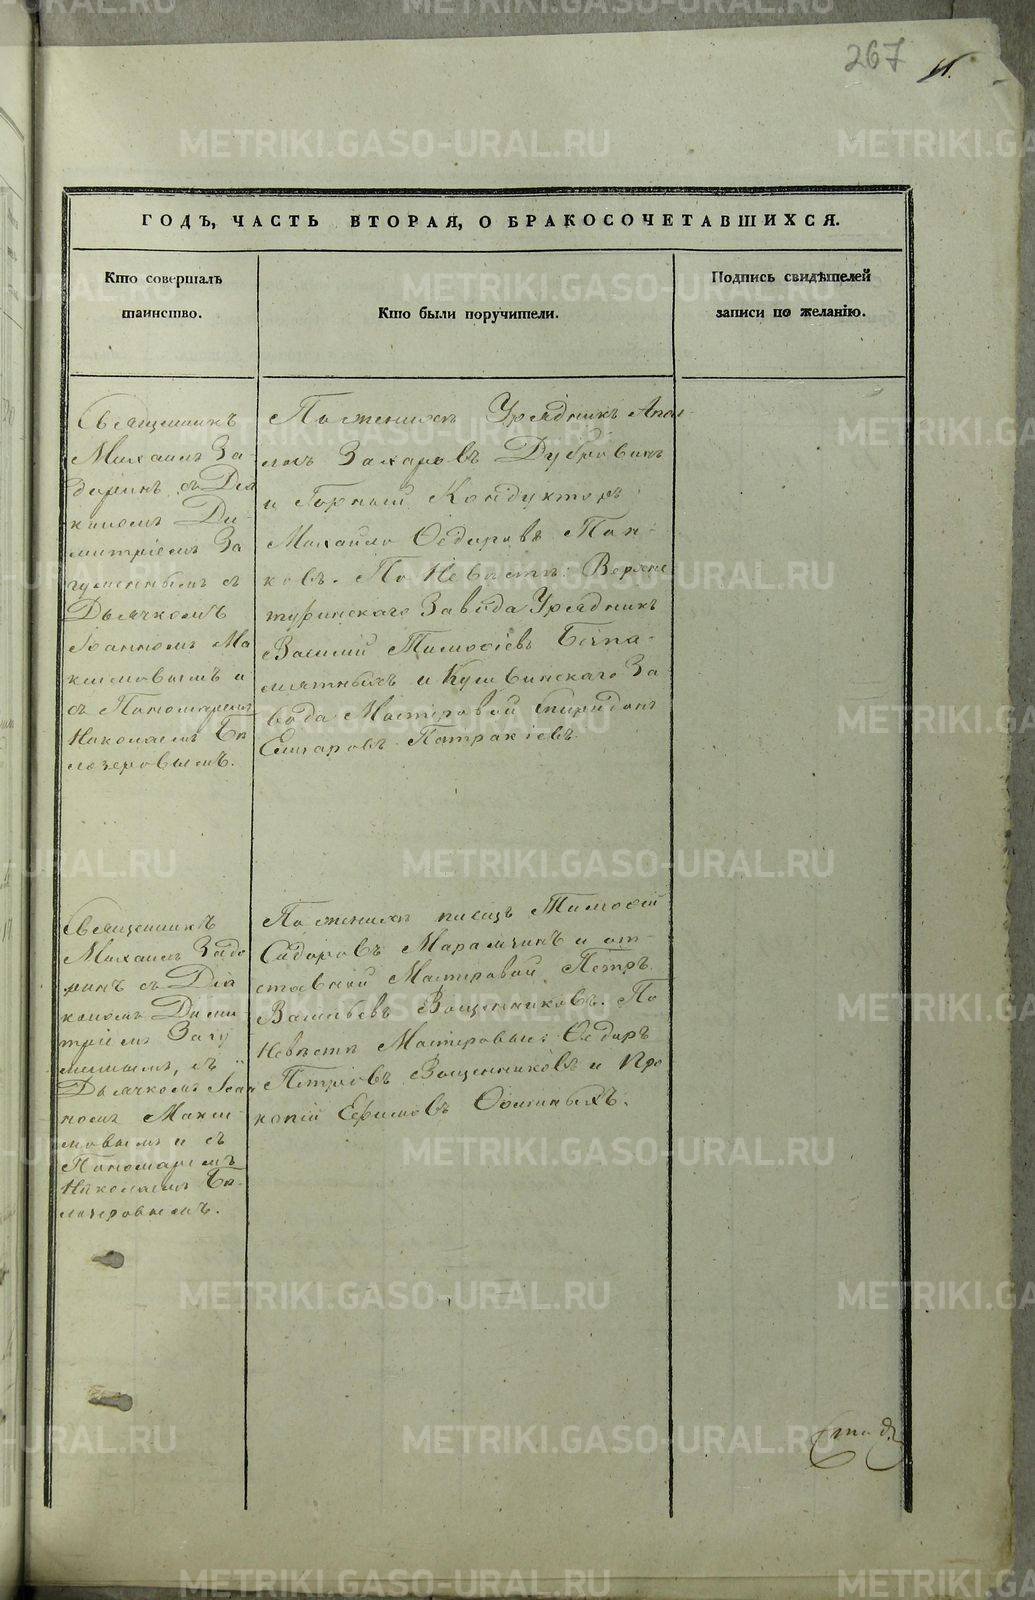 267
ГОДЪ, ЧАСТЬ ВТОРАЯ, О БРАКОСОЧЕТАВШИХСЯ.
Кто совершалъ
таинство.
Кто были поручители.
Подпись свидѣтелей
записи по желанію.
Священникъ
Михаилъ За-
доринъ съ Діа
кономъ Ди-
митріемъ За
гуменнымъ съ
Дьячкомъ
Іоанномъ Ма
ксимовымъ и
съ Пономаремъ
Николаемъ Бѣ
лозеровымъ.
По женихѣ Урядникъ
Захаровъ Дубровинъ
и Горный Кондукторъ
Михайло Ѳедоровъ Поп-
ковъ. По Невѣстѣ: Верхне
туринскаго Завода Урядникъ
Василий Тимоѳіевъ Безпа-
мятныхъ и Кушвинскаго За
вода Мастеровой Спиридонъ
Елизаровъ Патракіевъ.
Священникъ
Михаилъ Задо
ринъ съ Діа
кономъ Дими-
тріемъ Загу
меннымъ, съ
Дьячкомъ Іоан
номъ Макси-
мовымъ и съ
Пономаремъ
Николаемъ Бѣ-
лозеровымъ.
По женихѣ писецъ Тимоѳей
Сидоровъ Маралчинъ и от-
ставной Мастеровой Петръ
Васильевъ Вощенниковъ. По
Невѣстѣ Мастеровые: Ѳедоръ
Петровъ Вощенниковъ и Про
копій Ефимовъ Ѳоминыхъ.
METRIKI.GASO-URAL.RU